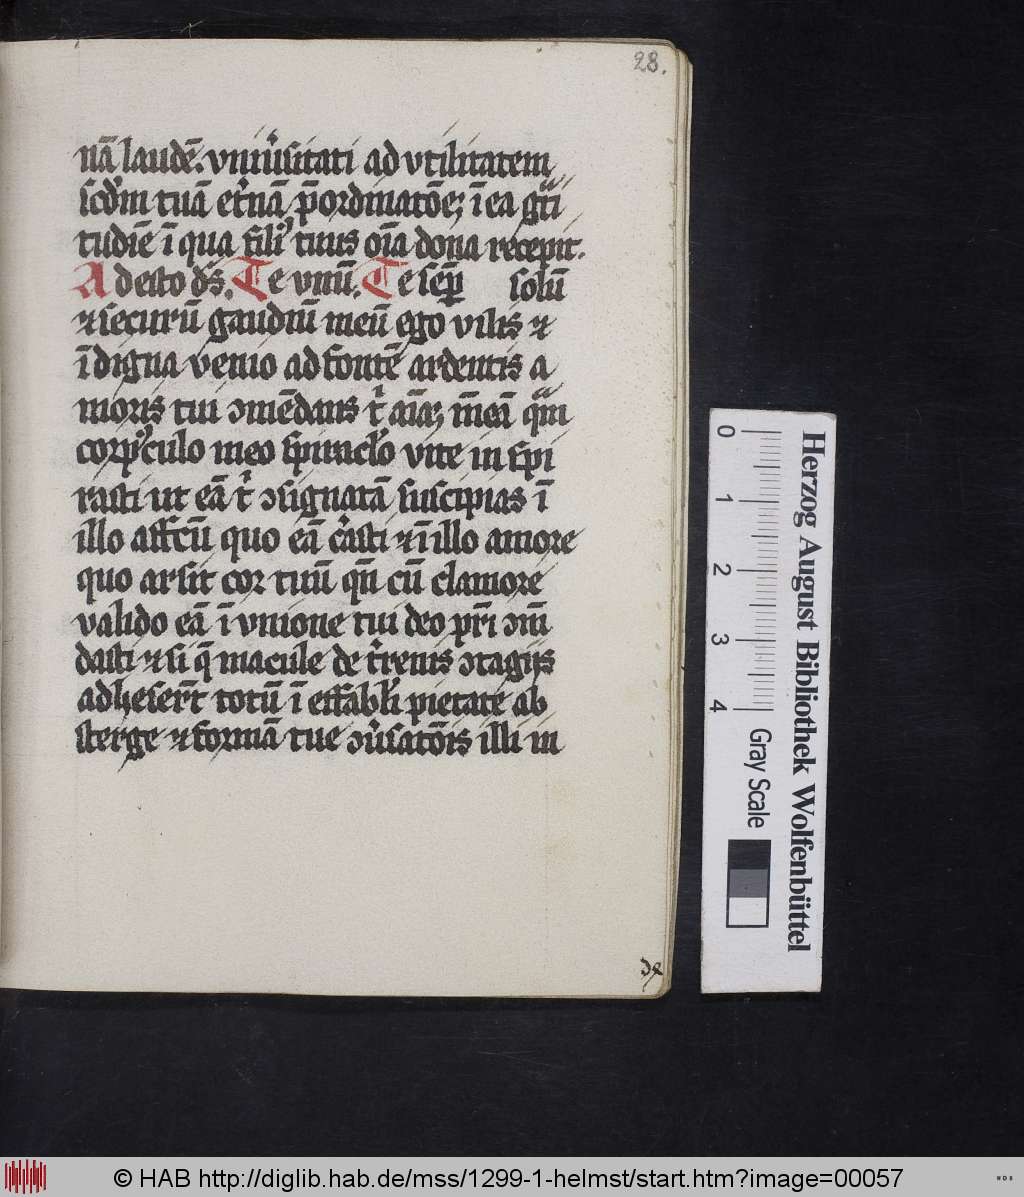 28.
nā laudē. vniũsitati ad vtilitatem
scdm tuā et̾nā p̄ordinatōe; ī ea gti
tudīe ī qua fili⁹ tuus oīa dona recepit.
Adesto ds̄. Te vnū. Te sēp solū
⁊ securū gaudiū meū ego vilis ⁊
īdigna venio ad fontē ardentis a
moris tui ɔmēdans t̾ aīa; mēā qm
corp⁹culo meo spiraclo vite in spi
rasti ut eā t̾ ɔsignatā suscipias ī
illo affcū quo eā c̾asti ⁊ ī illo amore
quo arsit cor tuū qn̄ cū clamore
valido eā ī vnione tui deo pr̄i ɔm̄
dasti ⁊ si q̄ macule de t̾renis ɔtagijs
adheser̄t totū ī effabli pietate ab
sterge ⁊ formā tue ɔũsatōis illi in
Herzog August Bibliothek Wolfenbüttel
0 1 2 3 4
Gray Scale
© HAB http://diglib.hab.de/mss/1299-1-helmst/start.htm?image=00057